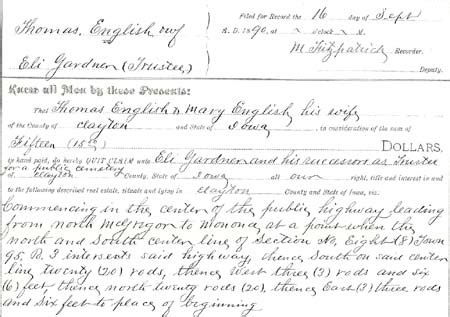 Thomas. English & wf
Filed for Record the 16 day of Sept
A. D. 1890, at ~ o'clock ~ M.
Eli Gardner (Trustee)
M Fitzpatrick Recorder.
Deputy.
Know all Men by these Presents:
That Thomas English & Mary English his wife
of the County of Clayton and State of Iowa, in consideration of the sum of
Fifteen (15 00) DOLLARS,
in hand paid, do hereby QUIT CLAIM unto Eli Gardner and his successor as Trustee
for a public cemetery
of Clayton County, State of Iowa all our right, title and interest in and
to the following described real estate, situate and lying in Clayton County and State of Iowa, viz:
Commencing in the center of the public highway leading
from north McGregor to Monona at a point when the
north and South center line of Section No, Eight (8) Town
95, R. 3 intersects said highway, thence South on said center
line twenty (20) rods, thence West three (3) rods and six
(6) feet, thence north twenty rods (20), thence East (3) three rods
and six feet to place of beginning